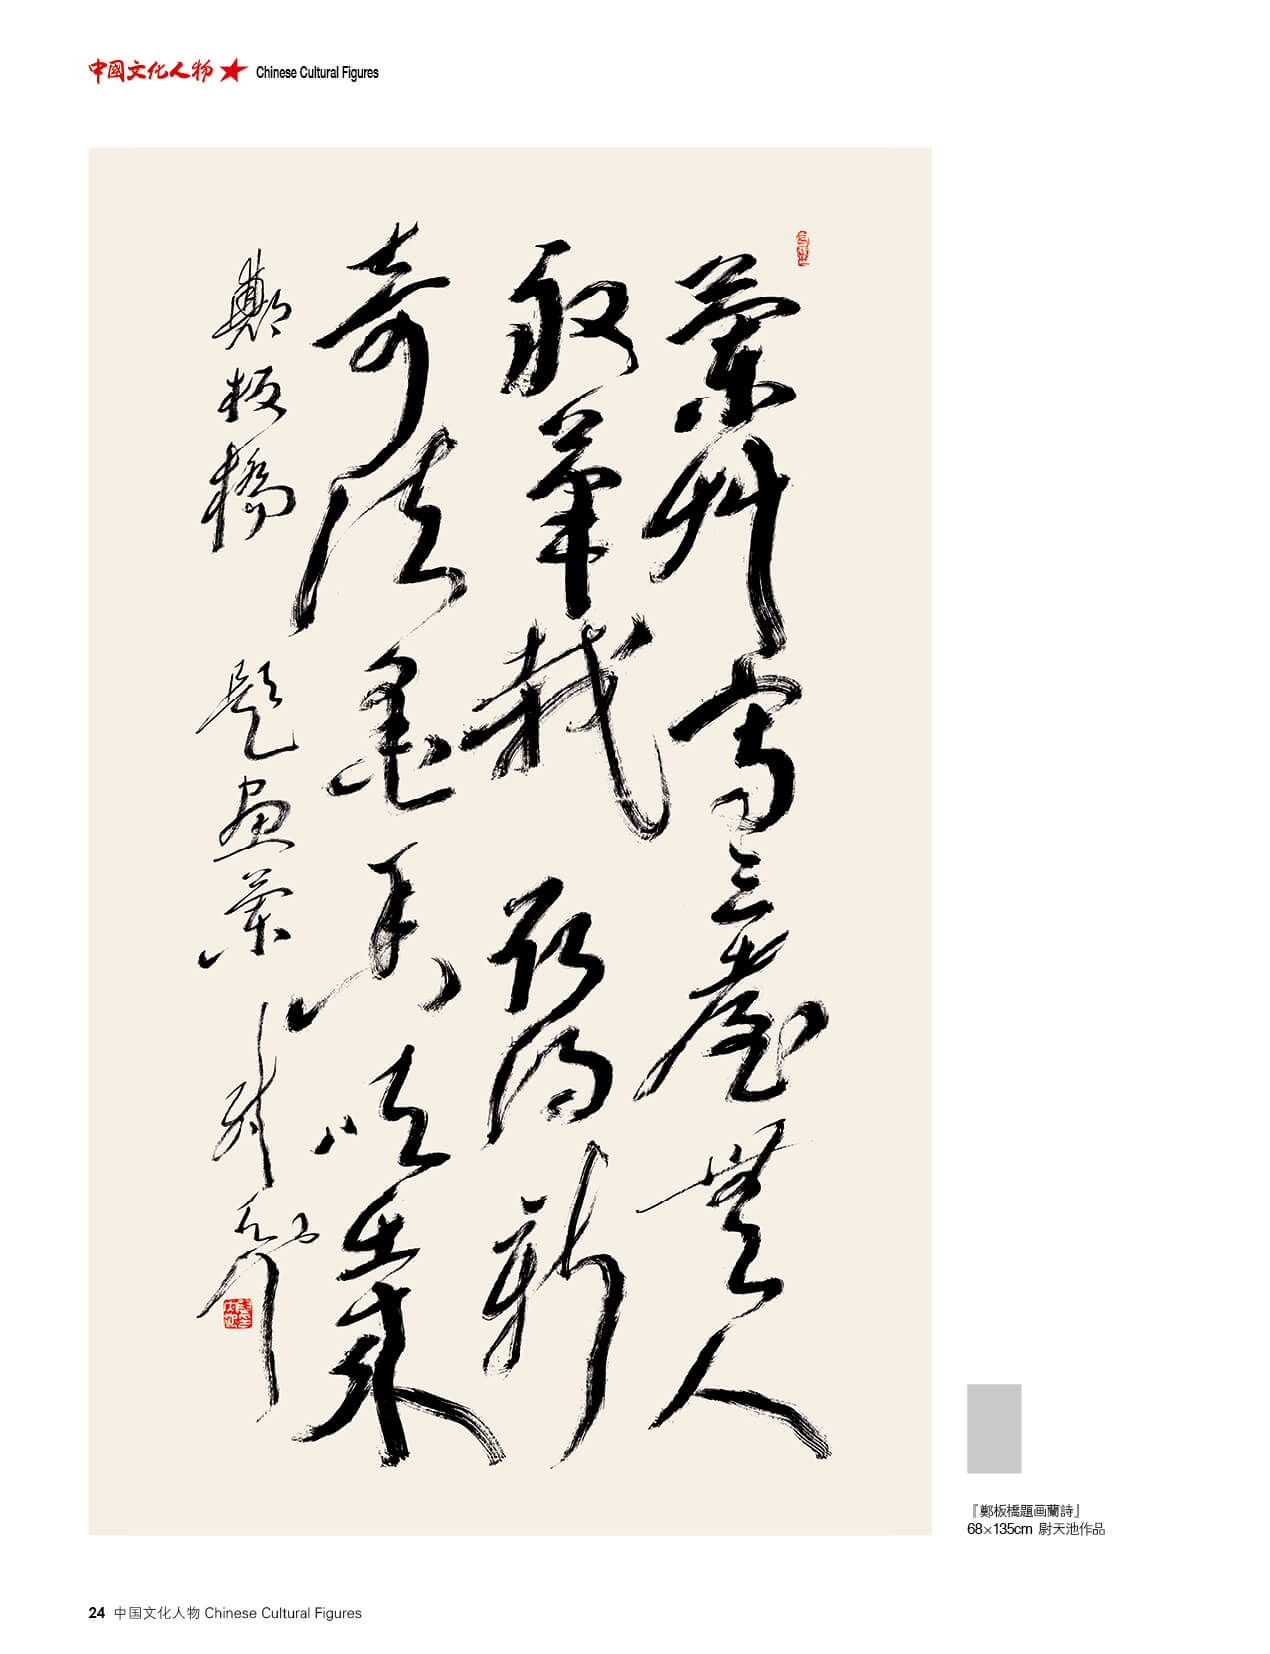 中國文化人物 Chinese Cultural Figures
蘭艸寫三臺無人
敢筆栽 所得新
奇法墨香吹出來
鄭板橋 題画蘭 尉天池
『鄭板橋題画蘭詩』
68×135cm 尉天池作品
24 中国文化人物 Chinese Cultural Figures